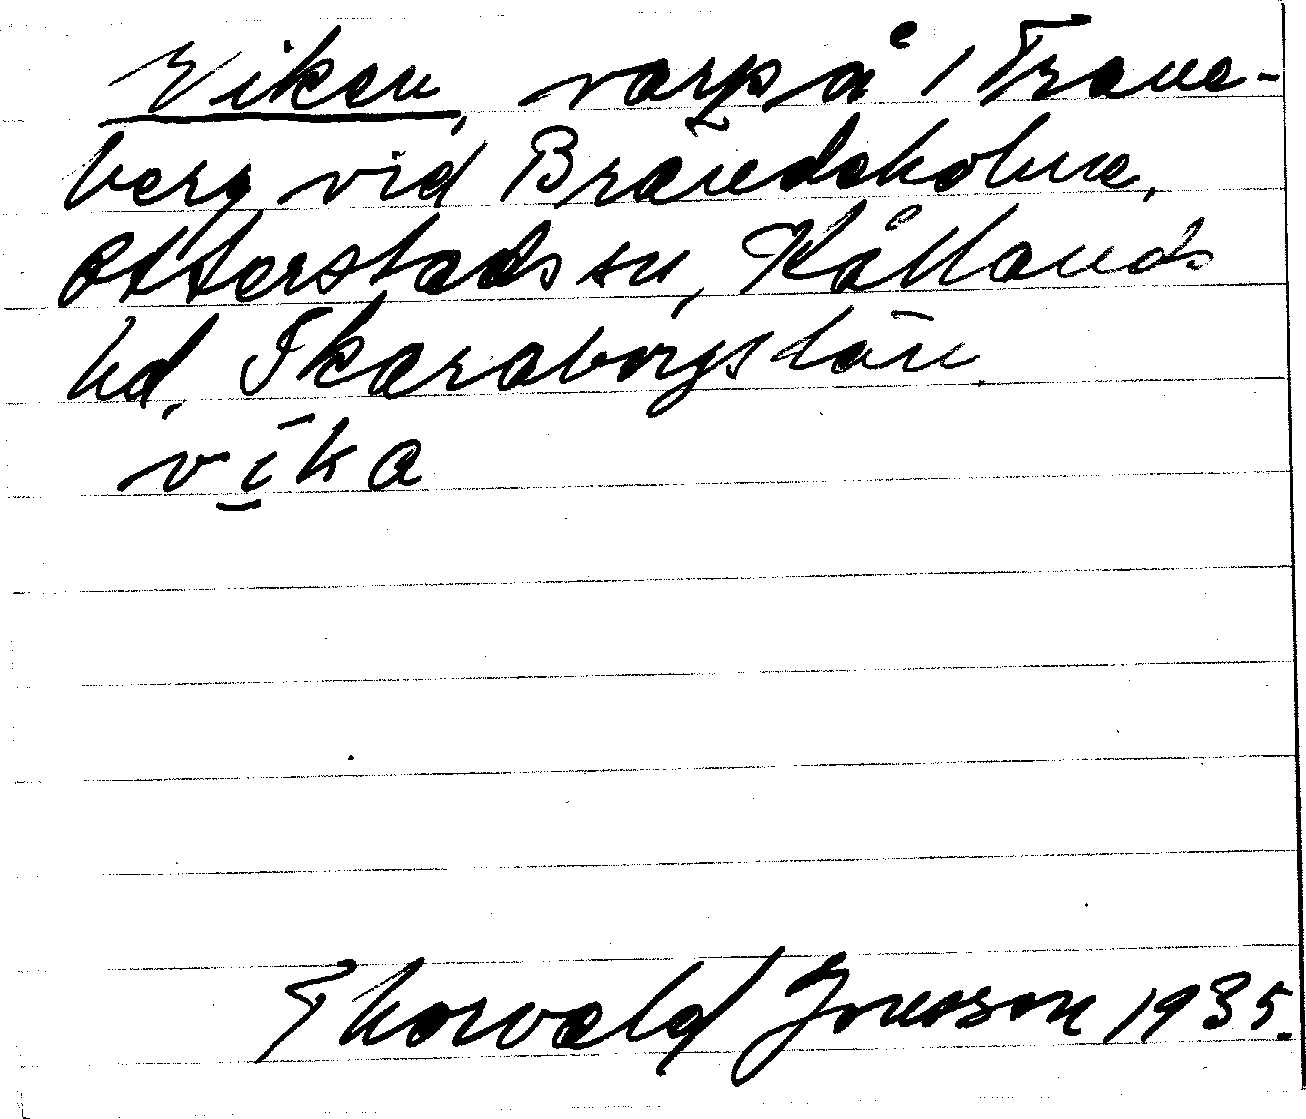 Viken, varp å i Trane-
berg vid Brändskolme,
Otterstads sn, Kållands
hd. Skaraborgs län
vīka
Thorvald Jonsson 1935.